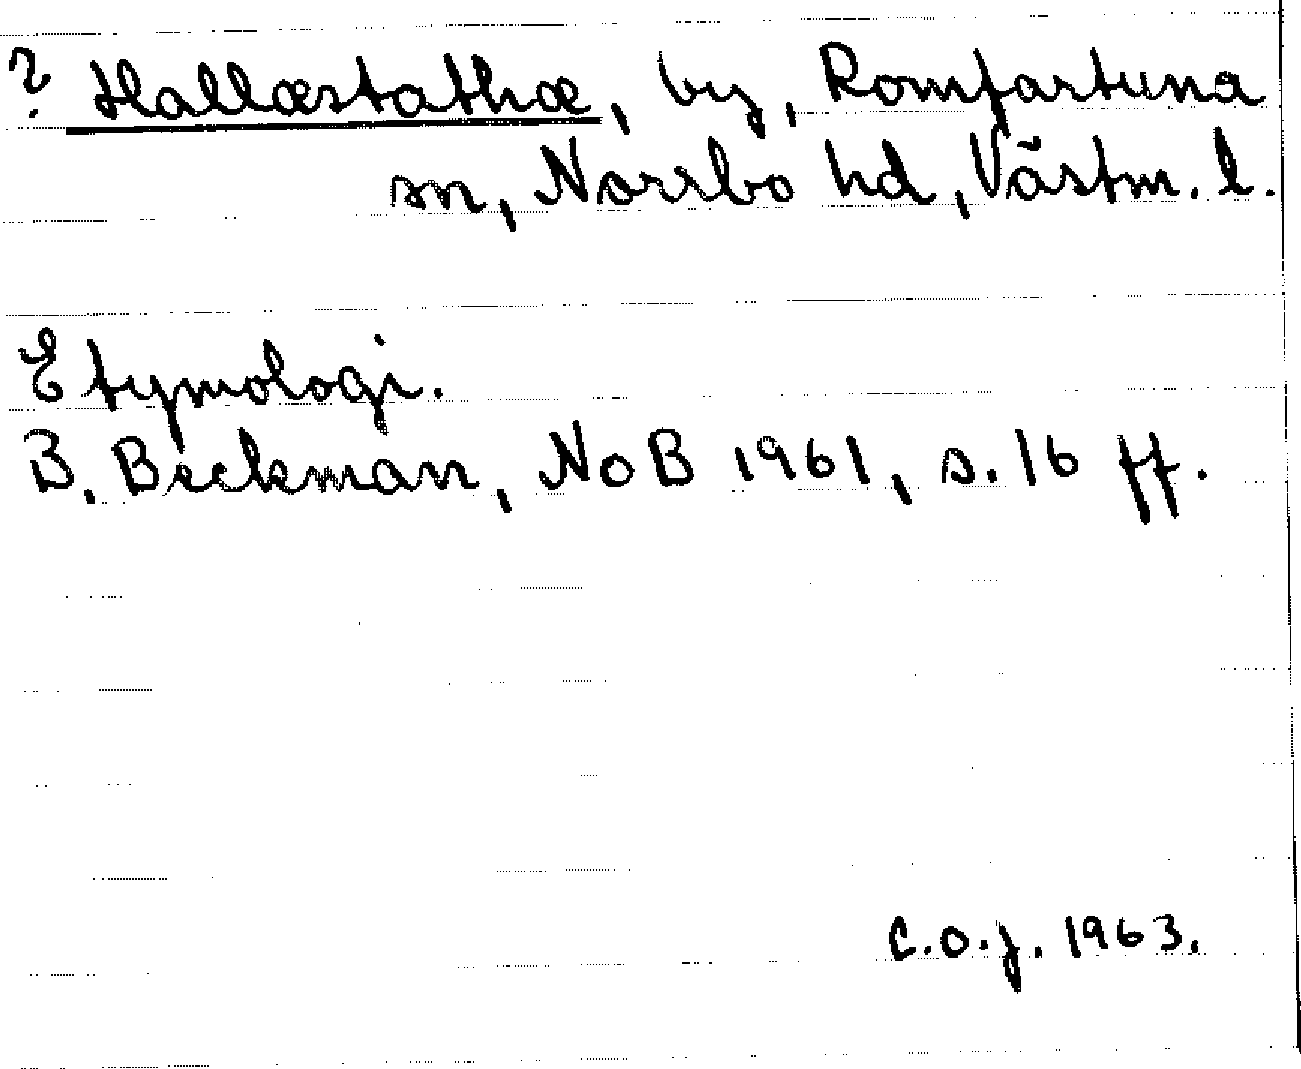 ? Hallæstathæ, by, Romfartuna
sn, Norrbo hd, Västm. l.
Etymologi.
B. Beckman, NoB 1961, s. 16 ff.
C.O.J. 1963.